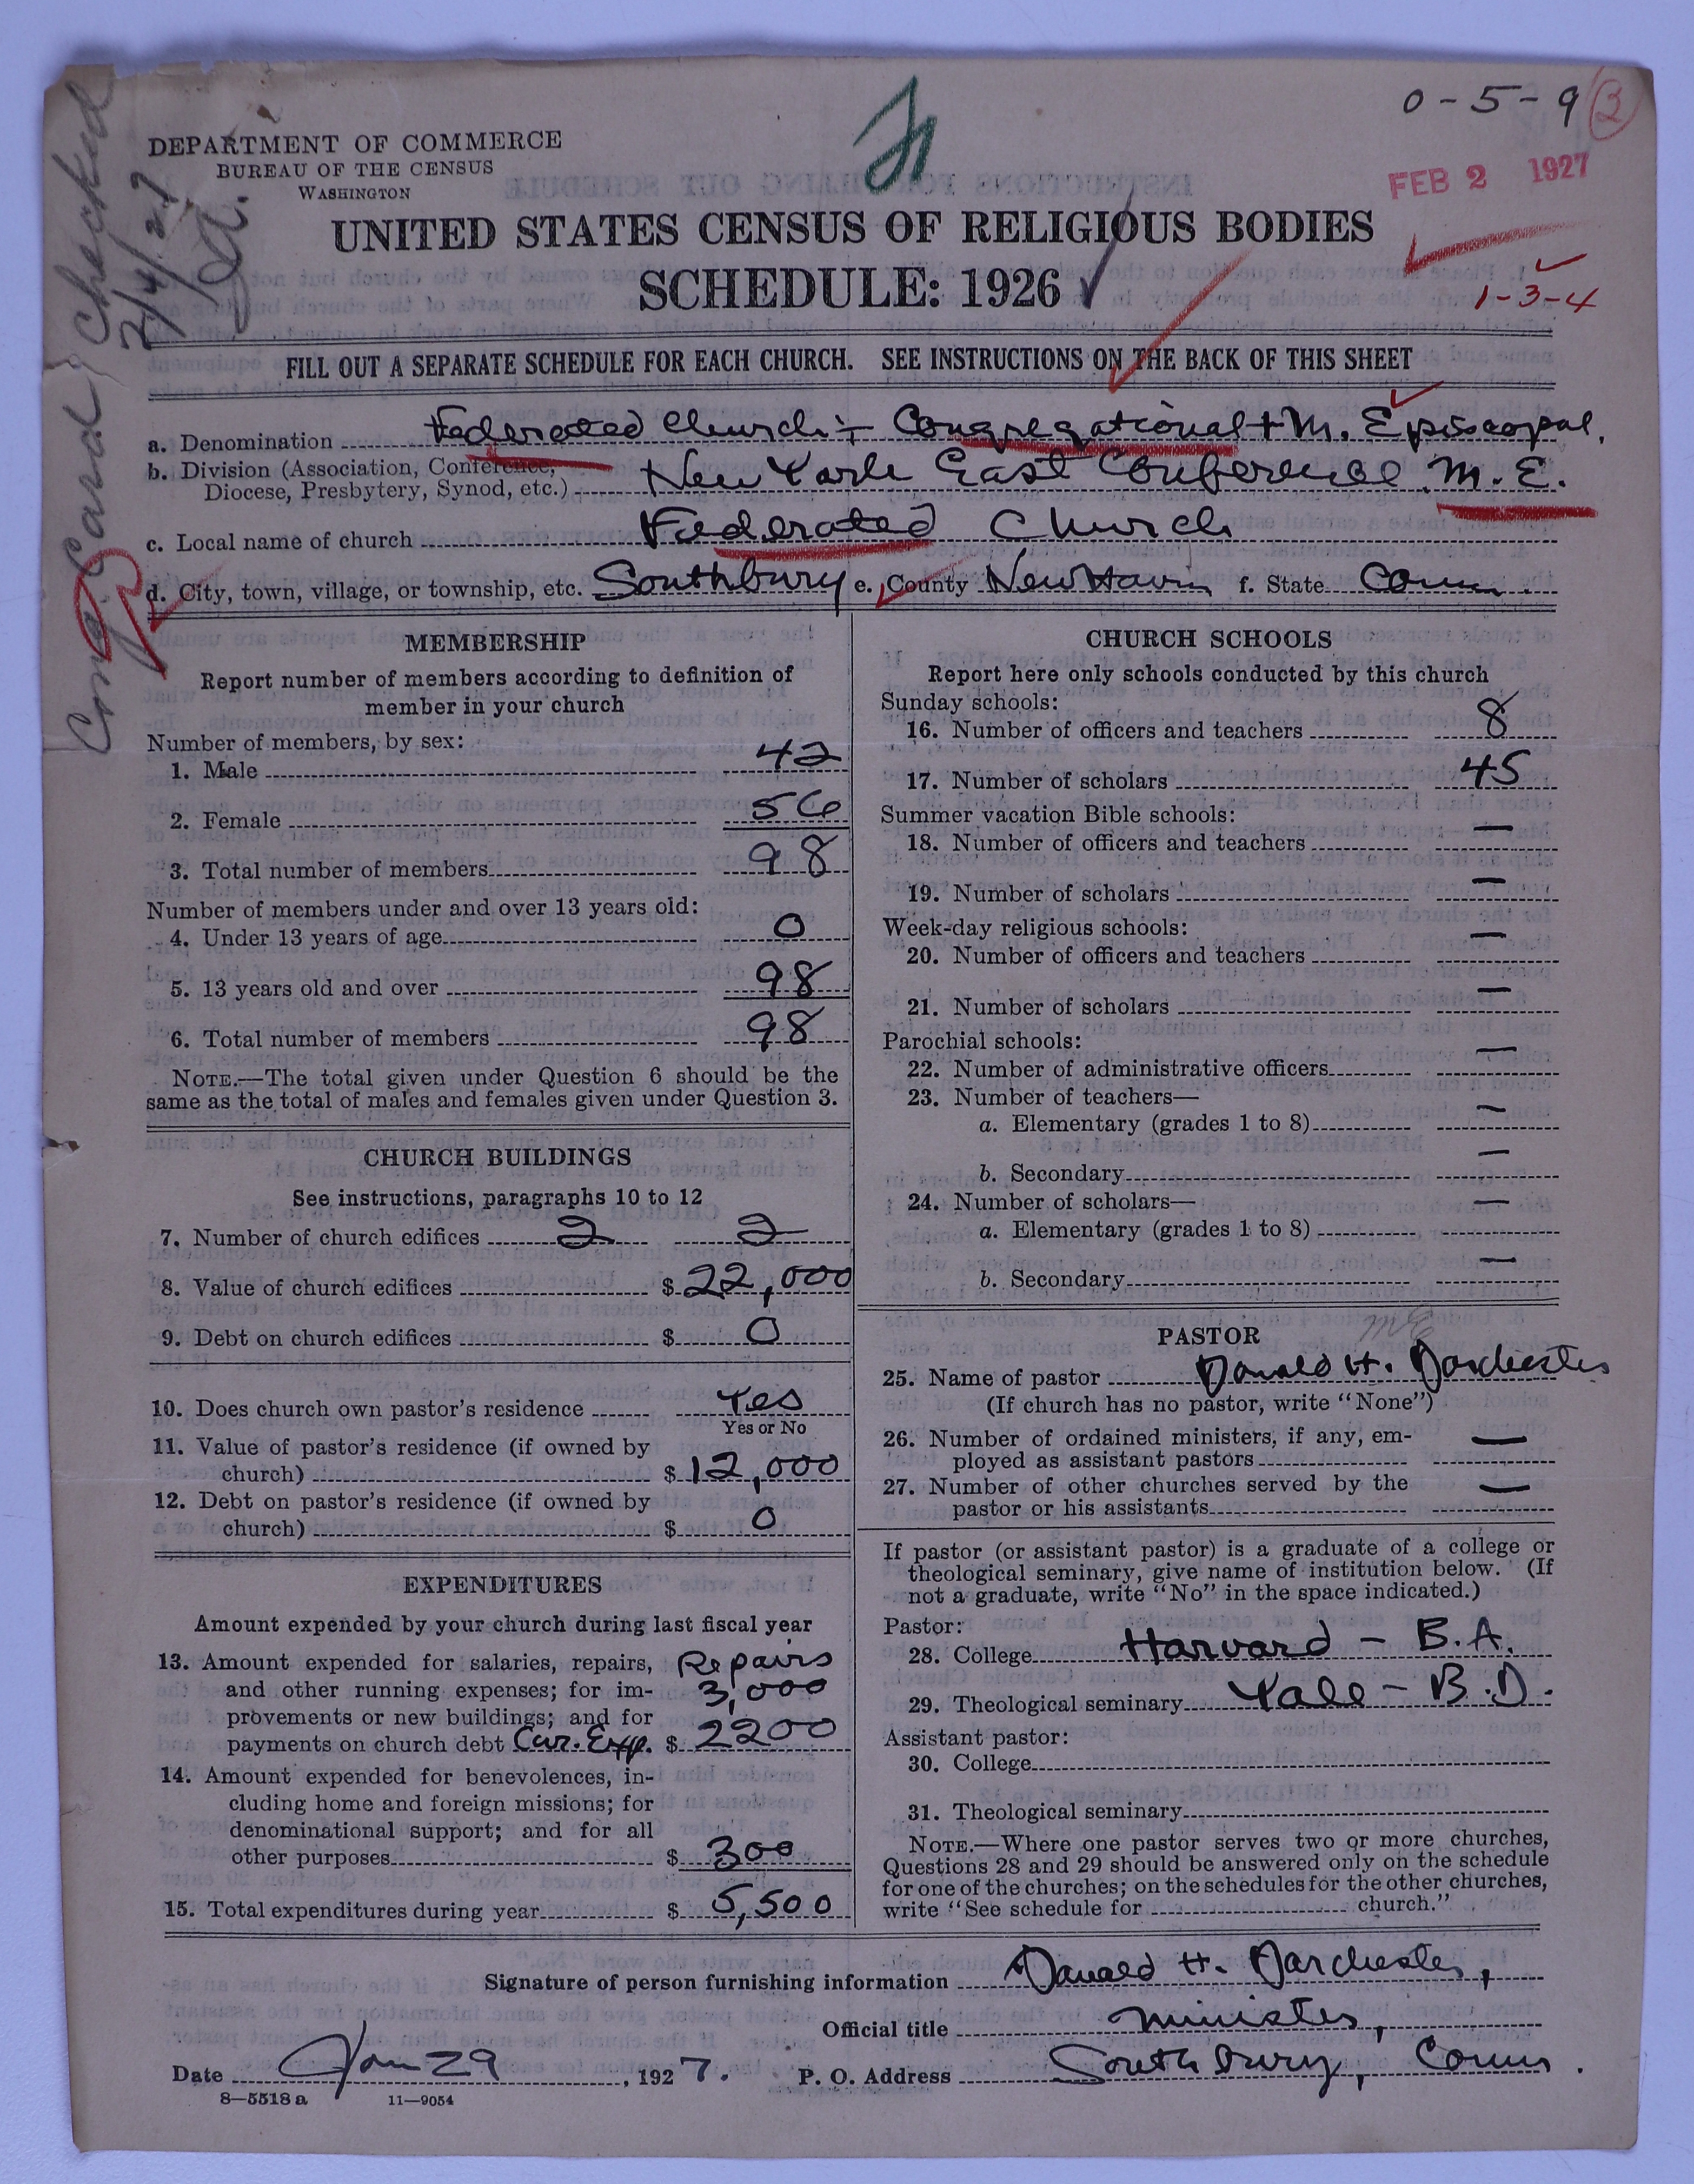 0-5-9 3
DEPARTMENT OF COMMERCE
BUREAU OF THE CENSUS
WASHINGTON
FEB 2 1927
UNITED STATES CENSUS OF RELIGIOUS BODIES
SCHEDULE: 1926
1-3-4
Cong. Card Checked
2/4/27
FILL OUT A SEPARATE SCHEDULE FOR EACH CHURCH. SEE INSTRUCTIONS ON THE BACK OF THIS SHEET
a. Denomination Federated Church:- Congregational + M. Episcopal.
b. Division (Association, Conference, Diocese, Presbytery, Synod, etc.) New York East Conference M.E.
c. Local name of church Federated Church
d. City, town, village, or township, etc. Southbury e. County New Haven f. State Conn.
MEMBERSHIP
Report number of members according to definition of
member in your church
Number of members, by sex:
1. Male 42
2. Female 56
3. Total number of members 98
Number of members under and over 13 years old:
4. Under 13 years of age 0
5. 13 years old and over 98
6. Total number of members 98
NOTE.—The total given under Question 6 should be the
same as the total of males and females given under Question 3.
CHURCH BUILDINGS
See instructions, paragraphs 10 to 12
7. Number of church edifices 2 2
8. Value of church edifices $ 22,000
9. Debt on church edifices $ 0
10. Does church own pastor's residence Yes
Yes or No
11. Value of pastor's residence (if owned by
church) $ 12,000
12. Debt on pastor's residence (if owned by
church) $ 0
EXPENDITURES
Amount expended by your church during last fiscal year
13. Amount expended for salaries, repairs, Repairs
and other running expenses; for im- 3,000
provements or new buildings; and for
payments on church debt Cur. Exp. $ 2200
14. Amount expended for benevolences, in-
cluding home and foreign missions; for
denominational support; and for all
other purposes $ 300
15. Total expenditures during year $ 5,500
CHURCH SCHOOLS
Report here only schools conducted by this church
Sunday schools:
16. Number of officers and teachers 8
17. Number of scholars 45
Summer vacation Bible schools:
18. Number of officers and teachers —
19. Number of scholars —
Week-day religious schools:
20. Number of officers and teachers —
21. Number of scholars —
Parochial schools:
22. Number of administrative officers —
23. Number of teachers—
a. Elementary (grades 1 to 8) —
b. Secondary —
24. Number of scholars—
a. Elementary (grades 1 to 8) —
b. Secondary —
PASTOR ME
25. Name of pastor Donald H. Dorchester
(If church has no pastor, write "None")
26. Number of ordained ministers, if any, em-
ployed as assistant pastors —
27. Number of other churches served by the
pastor or his assistants —
If pastor (or assistant pastor) is a graduate of a college or
theological seminary, give name of institution below. (If
not a graduate, write "No" in the space indicated.)
Pastor:
28. College Harvard - B.A.
29. Theological seminary Yale - B.D.
Assistant pastor:
30. College
31. Theological seminary
NOTE.—Where one pastor serves two or more churches,
Questions 28 and 29 should be answered only on the schedule
for one of the churches; on the schedules for the other churches,
write "See schedule for church."
Signature of person furnishing information Donald H. Dorchester,
Official title Minister,
Date Jan 29, 1927. P. O. Address Southbury, Conn.
8—5518 a 11—9054